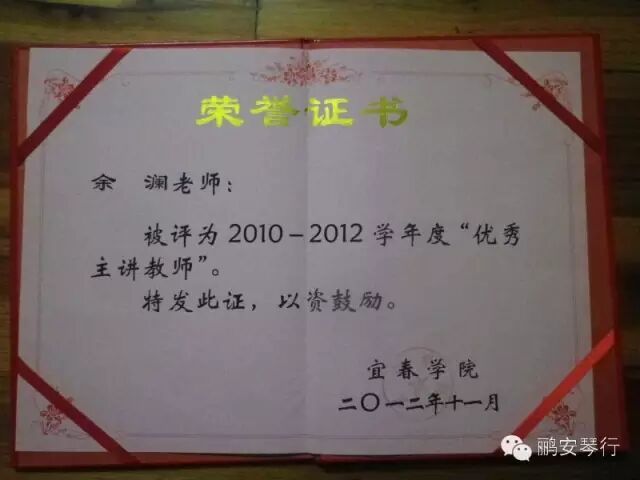 荣誉证书
余 澜老师：
被评为 2010－2012 学年度“优秀
主讲教师”。
特发此证，以资鼓励。
宜春学院
二〇一二年十一月
鹂安琴行